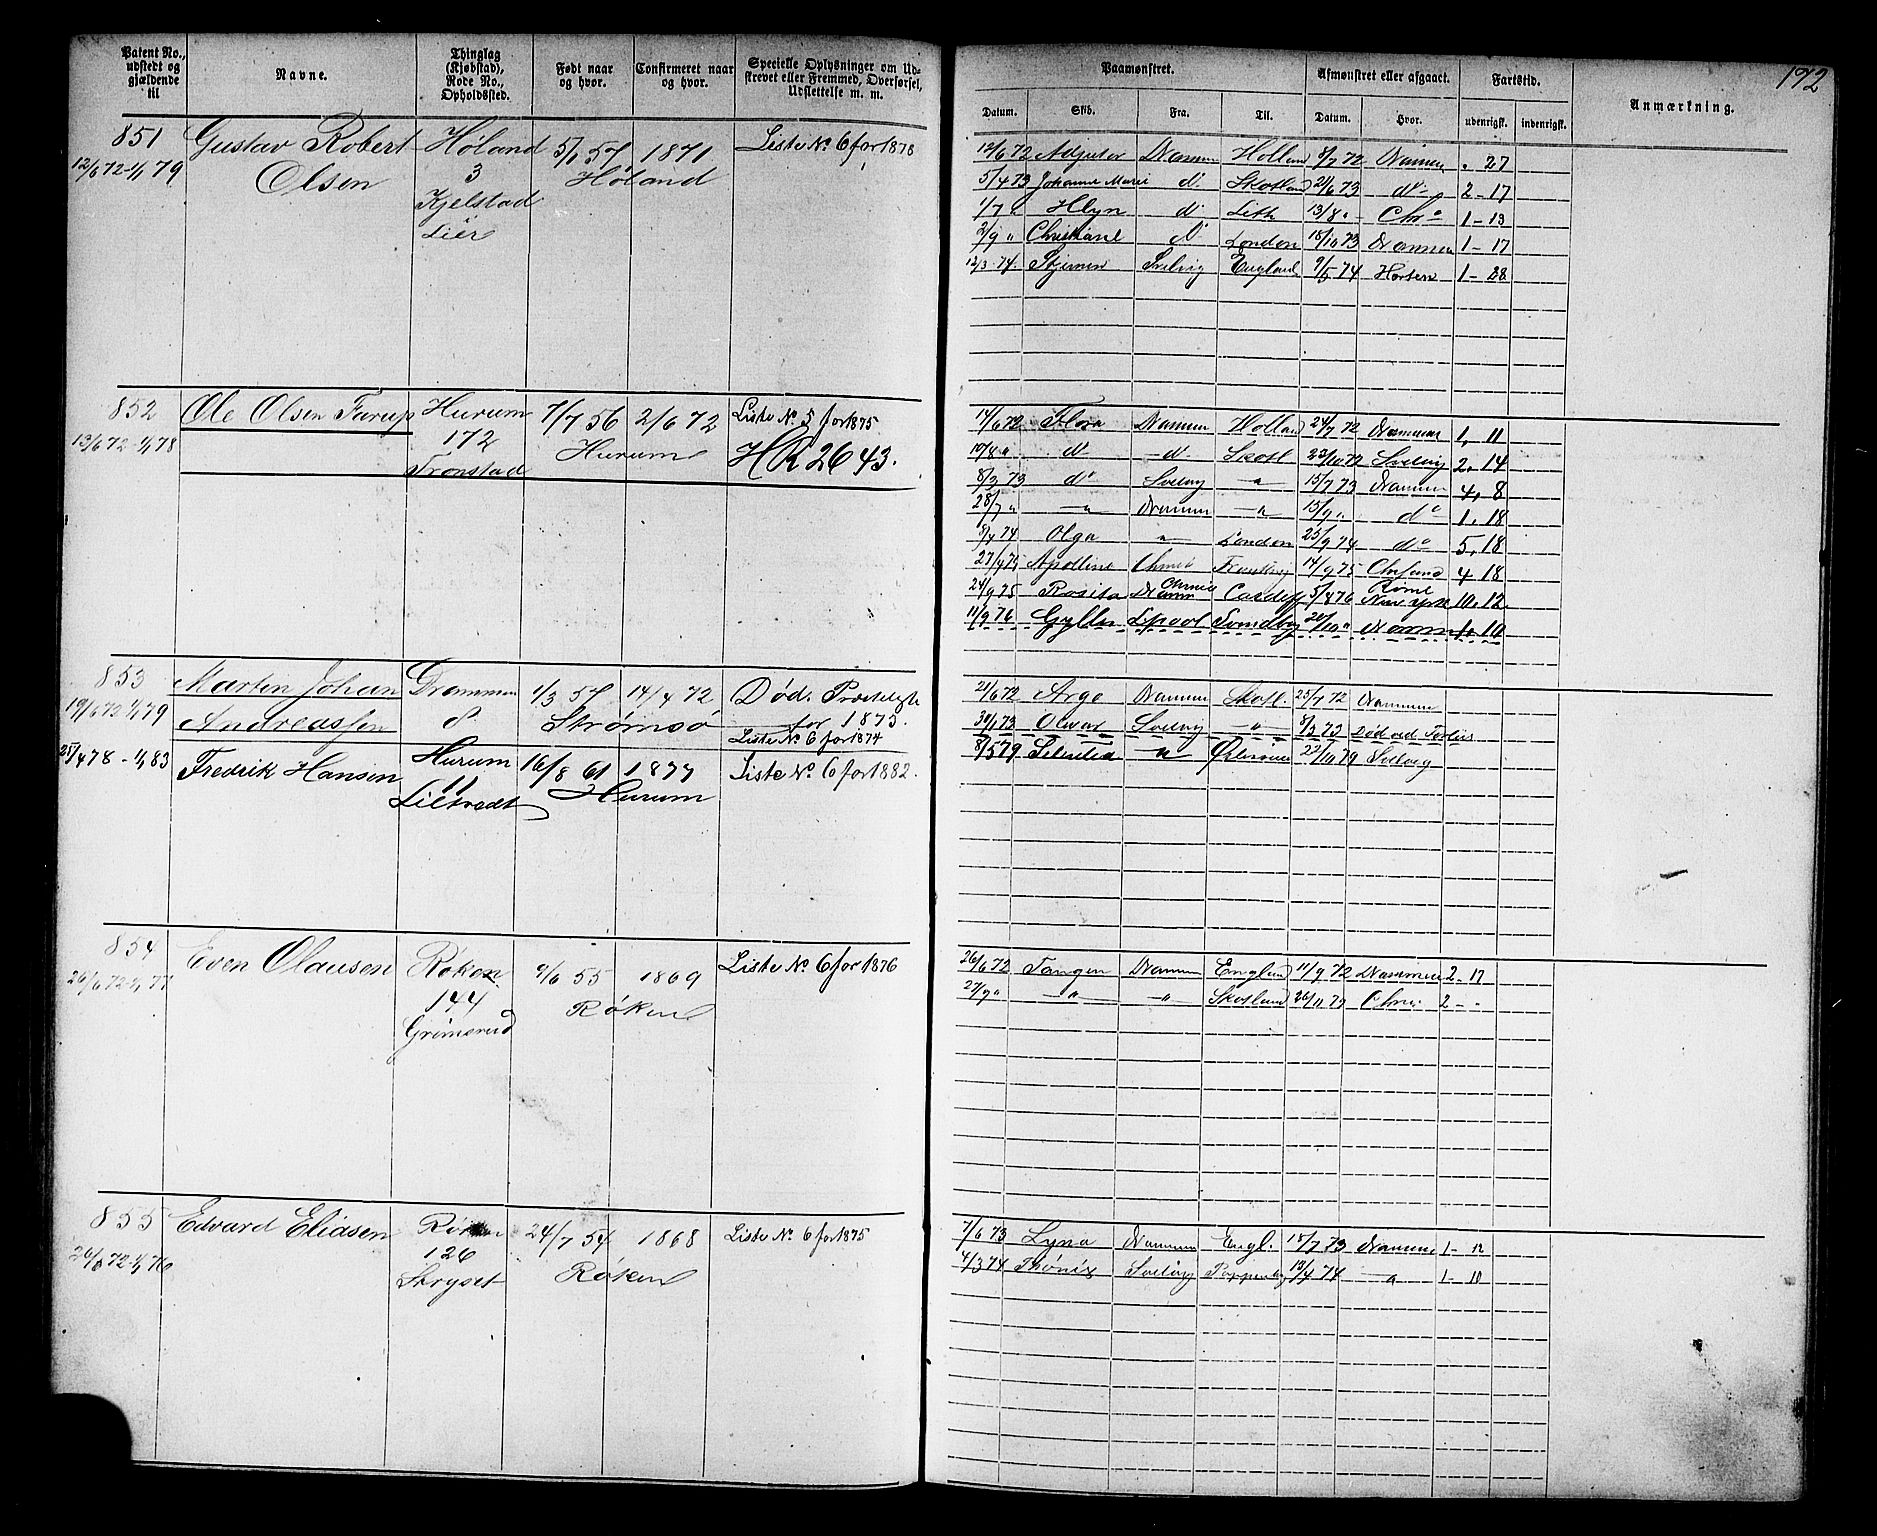 192
Patent No., udstedt og gjældende til
Navne.
Thinglag (Kjøbstad), Rode No., Opholdssted.
Født naar og hvor.
Confirmeret naar og hvor.
Specielle Oplysninger om Udskrevet eller Fremmed, Overførsel, Udslettelse m. m.
Paamønstret.
Afmønstret eller afgaaet.
Fartstid.
Anmærkning.
Datum. Skib. Fra. Til. Datum. Hvor. udenrigsk. indenrigsk.
851 Gustav Robert Høland 5/1 57 1871 Liste No 6 for 1878
12/6 72-1/1 79 Olsen 3 Høland
Kjelstad
Lier
12/6 72 Adjutor Drammen Holland 8/7 72 Drammen " 27
5/4 73 Johanne Marie do Skotland 21/6 73 do 2-17
1/7 " Hlyn do Lith 13/8 " Chra 1-13
2/9 " Christiane do London 18/10 73 Drammen 1-17
12/3 74 Stjernen Svelvig England 9/5 74 Horten 1-28
852 Ole Olsen Tarup Hurum 7/7 56 2/6 72 Liste No 5 for 1875
13/6 72-1/1 78 172 Hurum HR 2643.
Tronstad
14/6 72 Flora Drammen Holland 24/7 72 Drammen 1, 11
10/8 " do do Skotl 23/10 72 Svelvig 2, 14
8/3 73 do Svelvig " 15/7 73 Drammen 4, 8
28/7 " " Drammen " 15/9 " do 1. 18
8/4 74 Olga " London 25/9 74 do 5, 18
27/4 75 Apolline 14/9 75 4 18
24/9 75 Rosita Chania Dramn Cardiff 5/4 76 New York 10. 12.
11/9 76 Gyller Lpool 20/10 " Drammen 1. 10
853 Martin Johan Drammen 1/3 57 14/4 72 Død. Præsteliste
19/6 72 1/1 79 Andreassen 8 Strømsø for 1873.
Liste No 6 for 1874
25/4 78-1/1 83 Fredrik Hansen Hurum 16/8 61 1877 Liste No 6 for 1882.
11 Hurum
Lictvedt
21/6 72 Argo Drammen Skotl. 25/7 72 Drammen
30/1 73 Olivar Svelvig " 8/3 73 Død ved
8/5 79 " 22/10 79 Svelvig
854 Even Olausen Røken 9/6 55 1869 Liste No 6 for 1876
26/6 72-1/1 77 144 Røken
Grimsrud
26/6 72 Tangen Drammen England 11/9 72 Drammen 2-17
27/9 " " " Skotland 26/11 72 Chra 2 - -
855 Edvard Eliasen Røken 24/7 54 1868 Liste No 6 for 1875
26/6 72-1/1 76 126 Røken
Stryset
7/6 73 Lyna Drammen Engl. 18/7 73 Drammen 1-12
4/3 74 Fhønix Svelvig 13/4 74 " 1-10